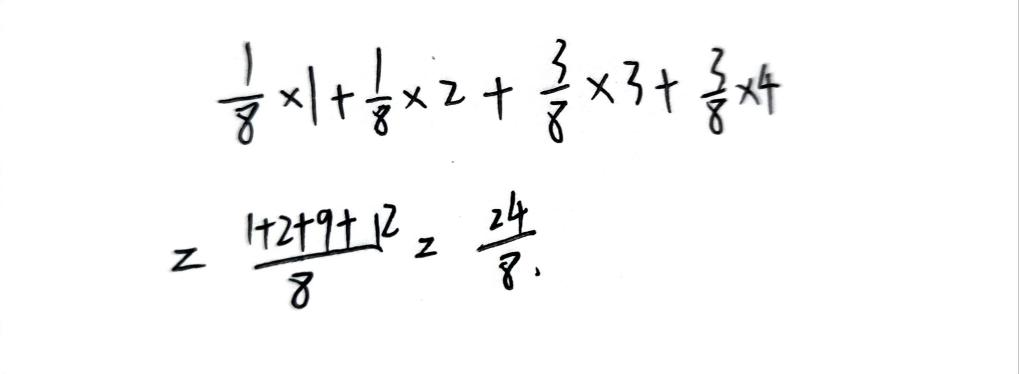 1/8 ×1 + 1/8 ×2 + 3/8 ×3 + 3/8 ×4
= (1+2+9+12)/8 = 24/8.